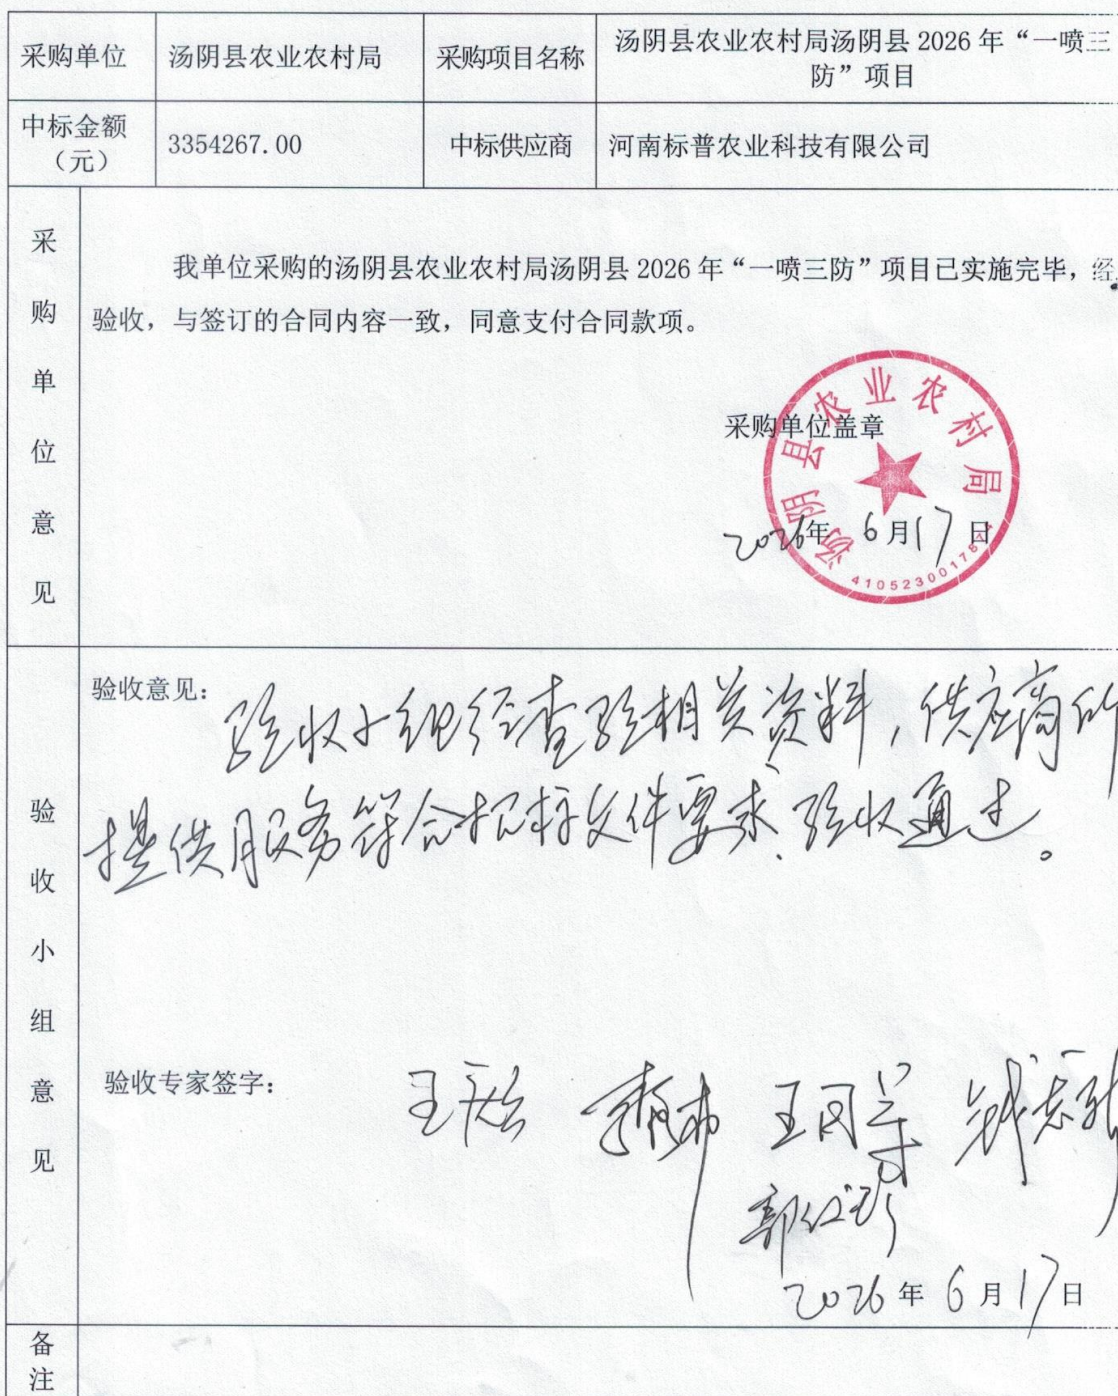 采购单位
汤阴县农业农村局
采购项目名称
汤阴县农业农村局汤阴县 2026 年“一喷三
防”项目
中标金额
（元）
3354267.00
中标供应商
河南标普农业科技有限公司
采购单位意见
我单位采购的汤阴县农业农村局汤阴县 2026 年“一喷三防”项目已实施完毕，经
验收，与签订的合同内容一致，同意支付合同款项。
采购单位盖章
汤阴县农业农村局
2026年 6月17日
验收小组意见
验收意见：
验收小组经查验相关资料，供应商所
提供服务符合招标文件要求、验收通过。
验收专家签字：
2026年 6月17日
备注